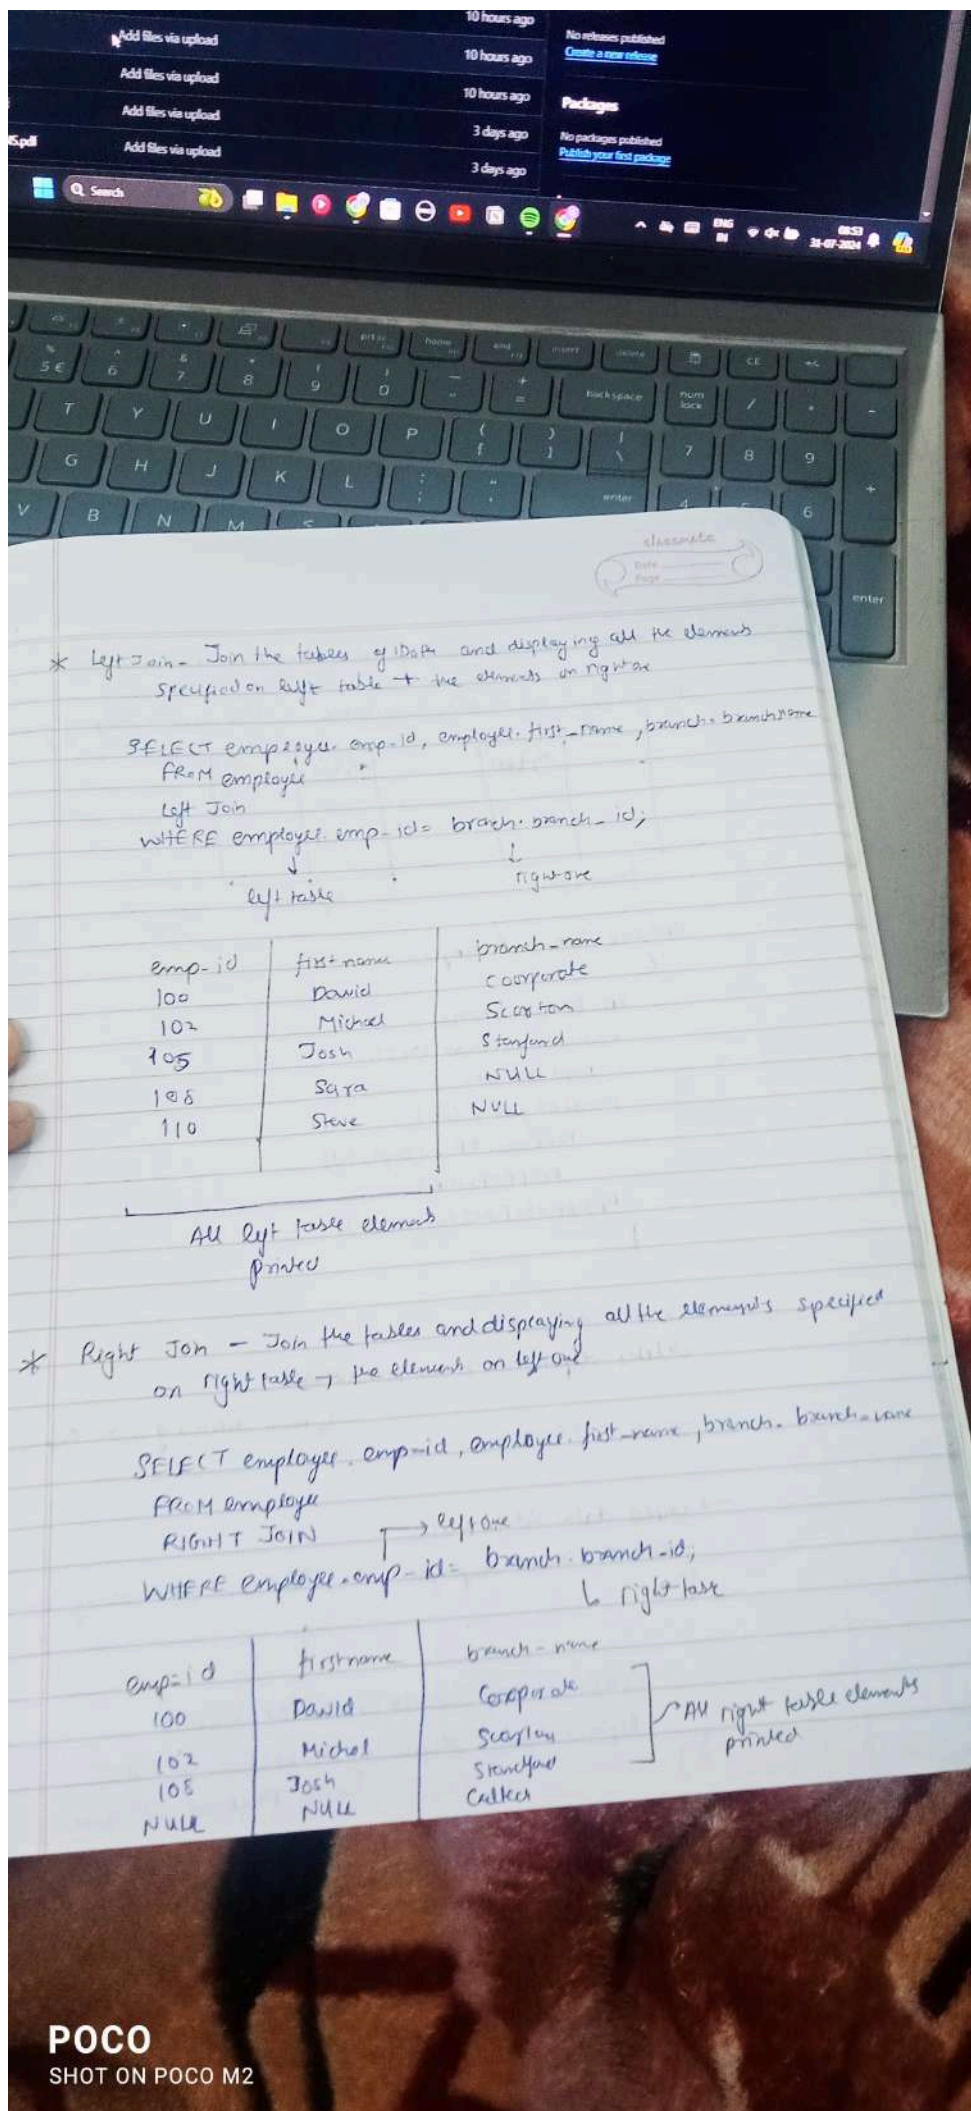 10 hours ago
Add files via upload
10 hours ago
Add files via upload
10 hours ago
Add files via upload
3 days ago
Add files via upload
3 days ago
No releases published
Create a new release
Packages
No packages published
Publish your first package
Search
ENG
IN
08:53
31-07-2024
home
end
insert
delete
CE
5 €
6
7
8
9
0
backspace
num
lock
T Y U I O P
7 8 9
G H J K L
enter
4
6
V B N M
enter
classmate
Date
Page
* Left Join - Join the tables of both and displaying all the elements
specified on left table + the elements on right one
SELECT employee. emp-id, employee. first_name, branch. branchname
FROM employee
Left Join
WHERE employee. emp-id = branch. branch_id;
left table
right one
emp-id first name branch-name
100 David Coorporate
102 Michael Scarton
105 Josh Stanford
108 Sara NULL
110 Steve NULL
All left table elements
printed
* Right Join - Join the tables and displaying all the elements specified
on right table → the elements on left one
SELECT employee. emp-id, employee. first_name, branch. branch-name
FROM employee
RIGHT JOIN → left one
WHERE employee. emp-id = branch. branch-id;
right table
emp-id firstname branch-name
100 David Corporate
102 Michel
105 Josh
NULL NULL
All right table elements
printed
POCO
SHOT ON POCO M2